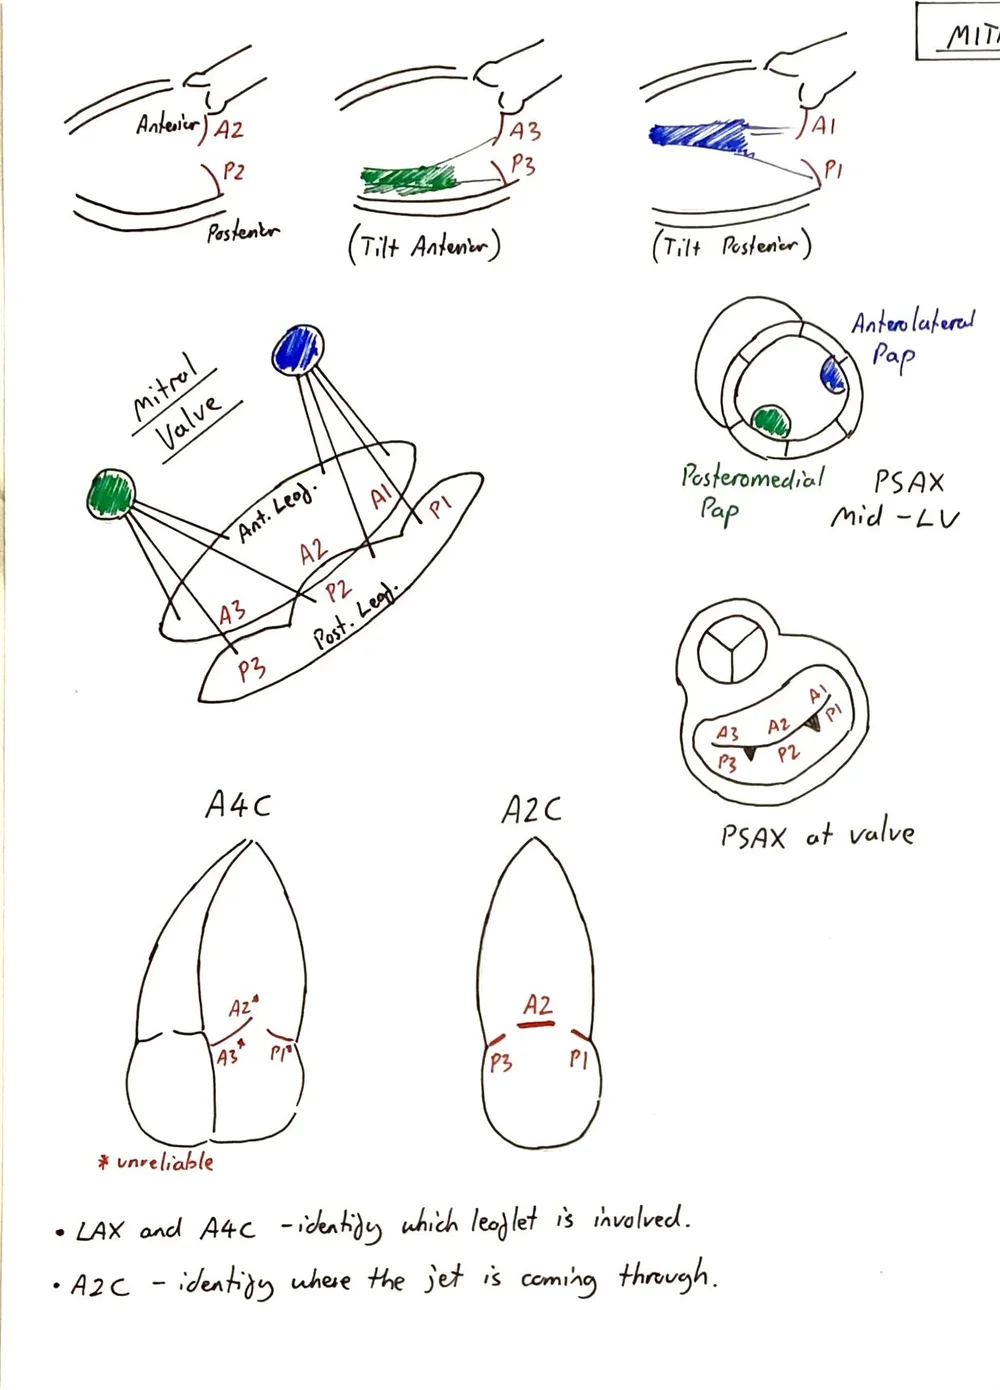 MIT
Anterior
A2
P2
Posterior
A3
P3
(Tilt Anterior)
A1
P1
(Tilt Posterior)
Mitral
Valve
Ant. Leaf.
A1
P1
A2
P2
A3
Post. Leaf.
P3
Anterolateral
Pap
Posteromedial
Pap
PSAX
Mid - LV
A1
A3 A2 P1
P3 P2
PSAX at valve
A4C
A2*
A3* P1*
* unreliable
A2C
A2
P3 P1
• LAX and A4C - identify which leaflet is involved.
• A2C - identify where the jet is coming through.